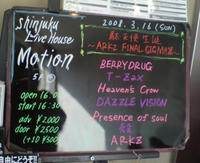 shinjuku
Live House
Motion
5F
open 16:00
start 16:30
adv ¥2000
door ¥2500
(+1D ¥500)
2008. 3. 16 (SUN)
~ARKZ FINAL GIGAMIX~
BERRYDRUG
T-Zax
Heaven's Crow
DAZZLE VISION
Presence of soul
ARKZ
自由にどうぞ!!